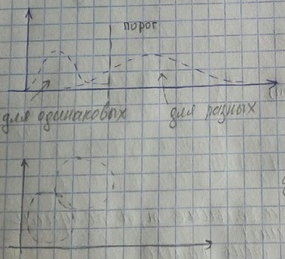 порог
для одинаковых
для разных